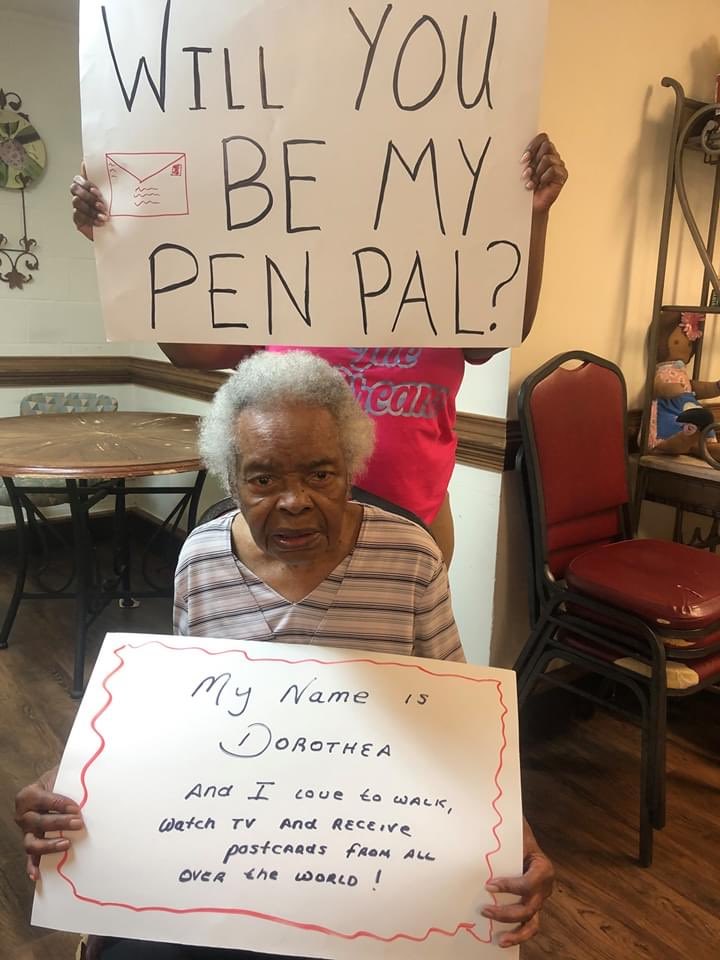 WILL YOU
BE MY
PEN PAL?
My Name is
DOROTHEA
And I love to WALK,
Watch TV And RECEIVE
postcards FROM ALL
OVER the WORLD !